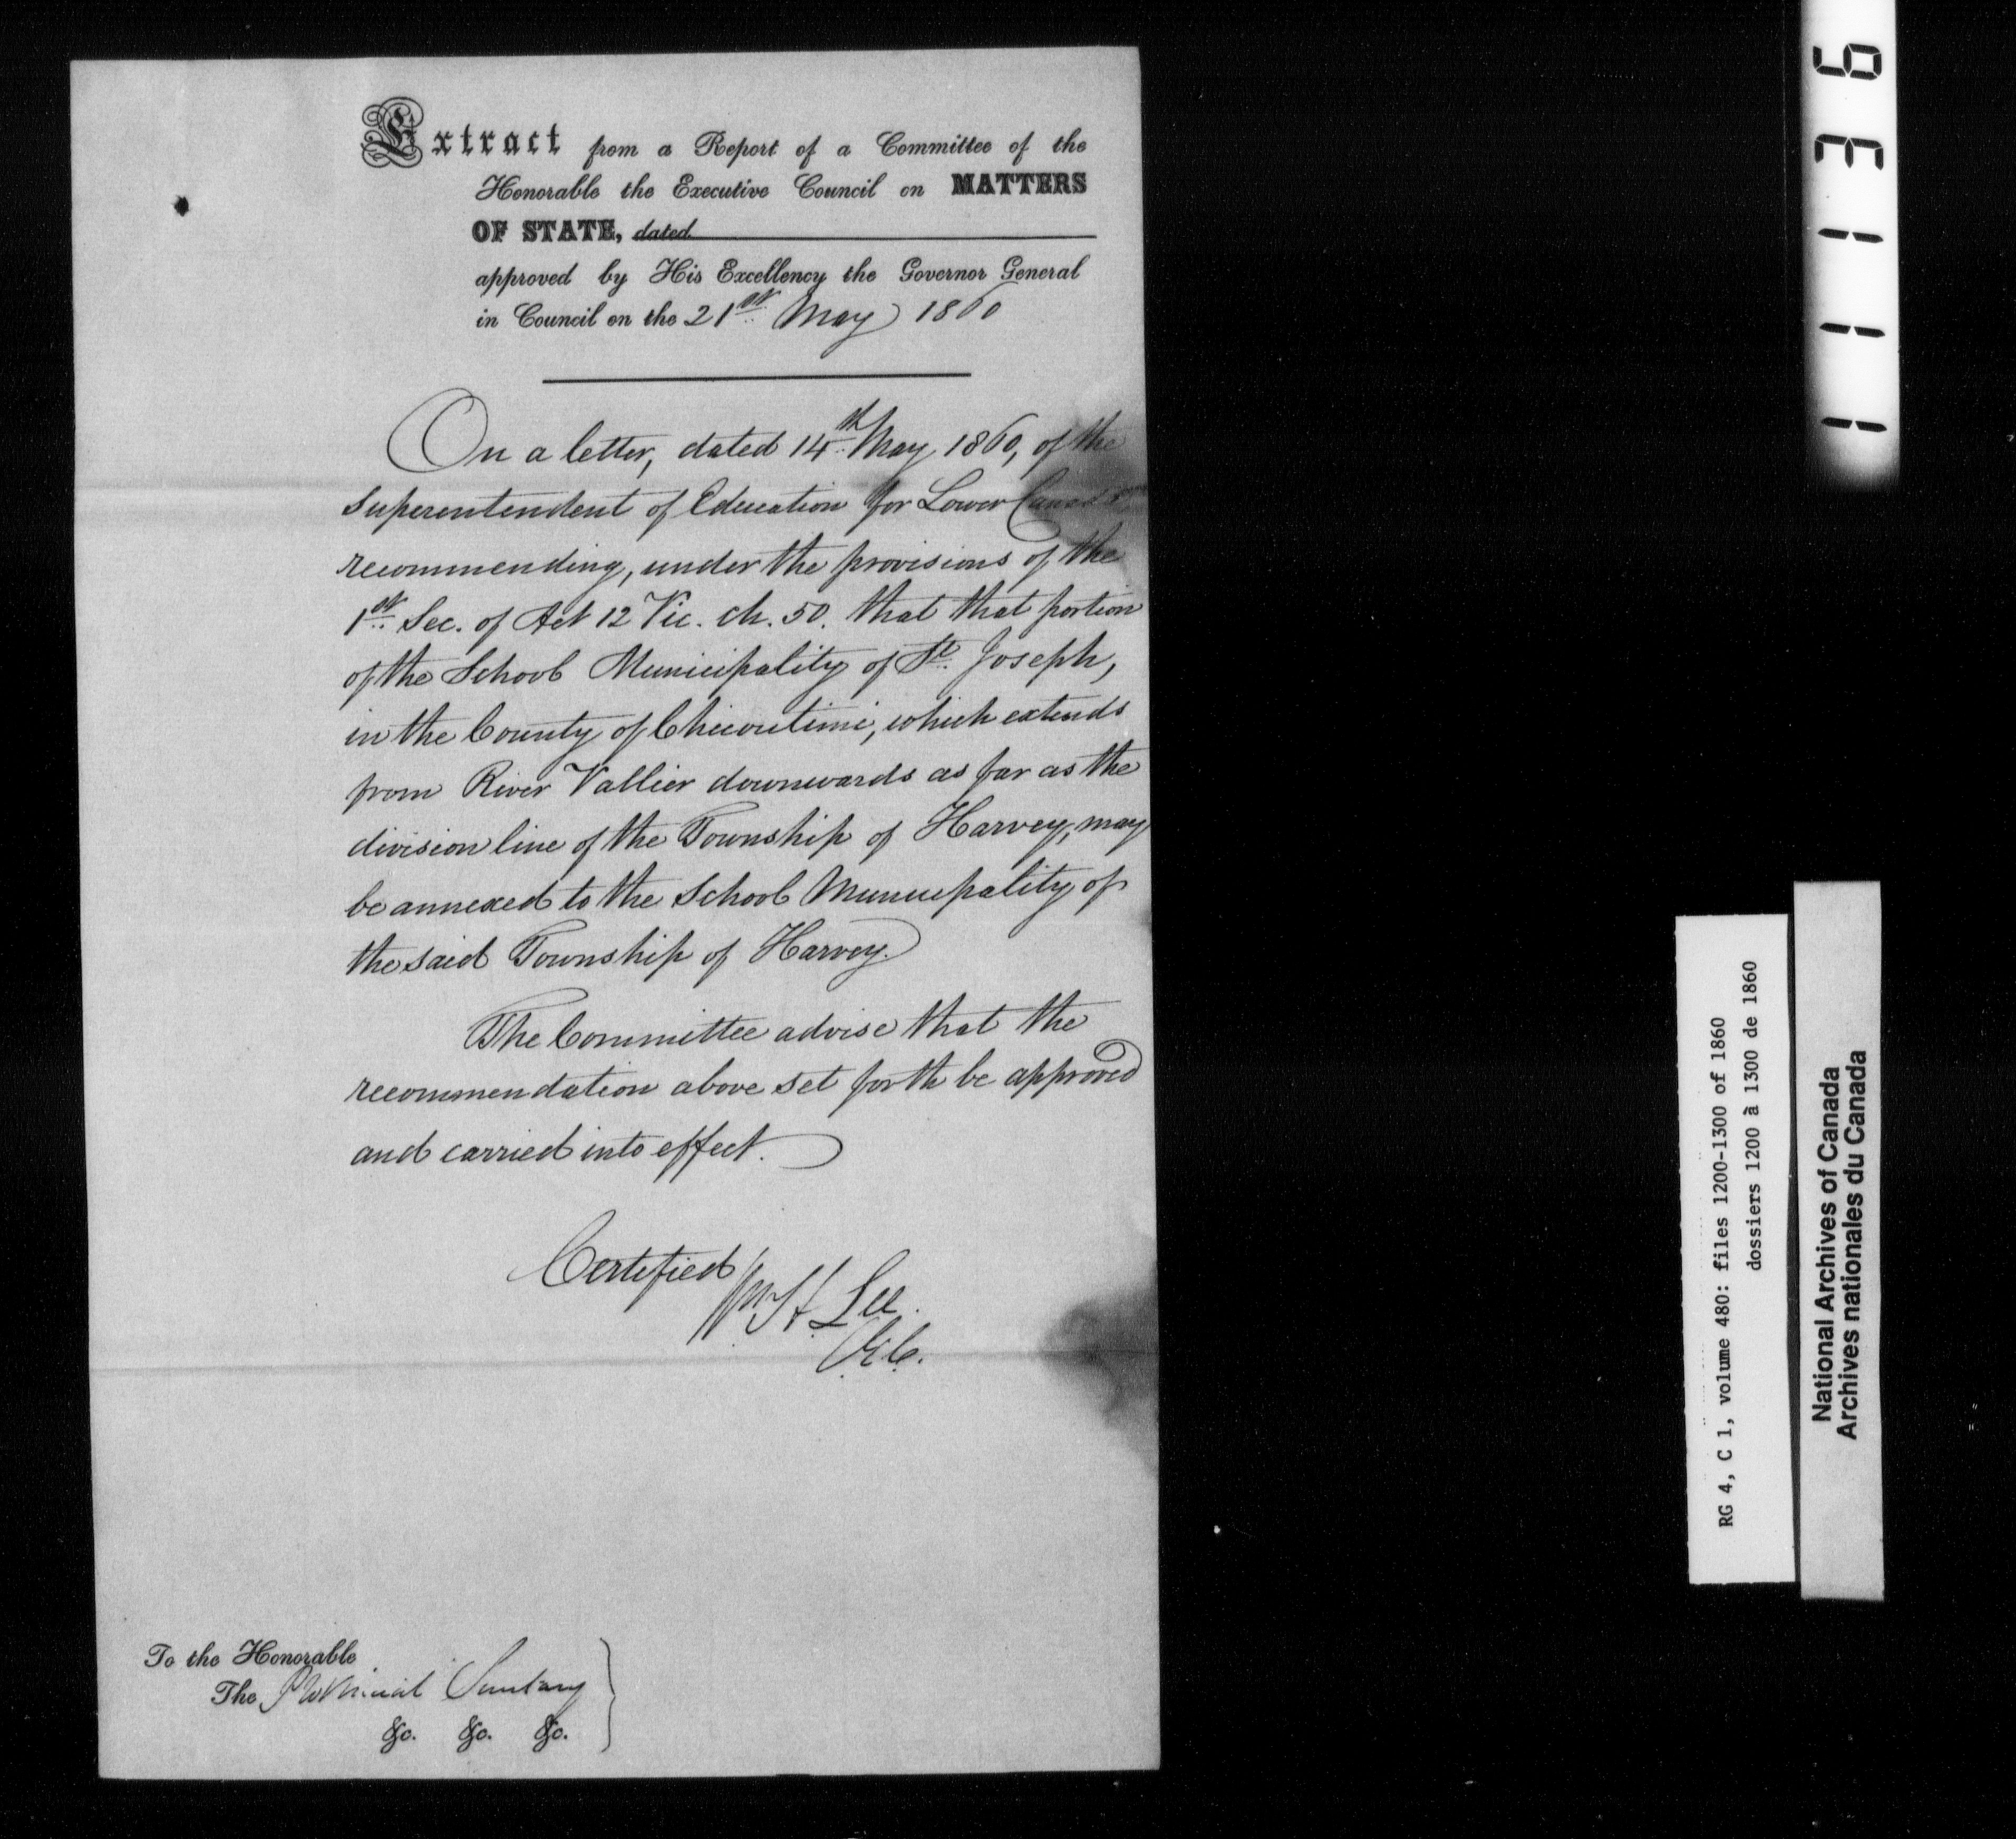 Extract from a Report of a Committee of the
Honorable the Executive Council on MATTERS
OF STATE, dated
approved by His Excellency the Governor General
in Council on the 21st May 1860
On a letter, dated 14th May 1860, of the
Superentendent of Education for Lower Canada
recommending, under the provisions of the
1st Sec. of Act 12 Vic. ch. 50. that that portion
of the School Municipality of St. Joseph,
in the County of Chicoutimi, which extends
from River Vallier downwards as far as the
division line of the Township of Harvey, may
be annexed to the School Municipality of
the said Township of Harvey.
The Committee advise that the
recommendation above set forth be approved
and carried into effect.
Certified
Wm H Lee.
C.E.C.
To the Honorable
The Provincial Secretary
&c. &c. &c.
11136
RG 4, C 1, volume 480: files 1200-1300 of 1860
dossiers 1200 à 1300 de 1860
National Archives of Canada
Archives nationales du Canada